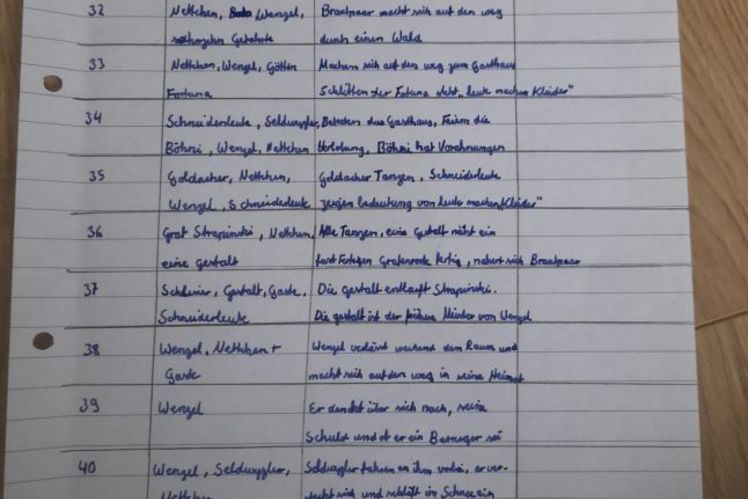 32 Nettchen, Wenzel, Brautpaar macht sich auf den weg
Gefährte durch einen Wald
33 Nettchen, Wenzel, Göttin Machen sich auf den weg zum Gasthaus
Fortuna Schlitten der Fotuna steht „leute machen Kleider"
34 Schneiderleute, Seldwyler, Betreten das Gasthaus, Feiern die
Böhni, Wenzel, Nettchen Verlobung, Böhni hat Vorahnungen
35 Goldacher, Nettchen, Goldacher Tanzen, Schneiderleute
Wenzel, Schneiderleute zeigen bedeutung von leute machen „Kleider"
36 Graf Strapinski, Nettchen, Alle Tanzen, eine Gestalt näht ein
eine gestalt fast Fertigen Grafenrock fertig, nähert sich Brautpaar
37 Gestalt, Gäste, Die gestalt entlauft Strapinski.
Schneiderleute Die gestalt ist der frühere Meister von Wenzel
38 Wenzel, Nettchen + Wenzel den Raum und
Gäste macht sich auf den weg in seine Heimat
39 Wenzel Er denckt über sich nach, seine
Schuld und ob er ein Betrüger sei
40 Wenzel, Seldwyler, Seldwyler fahren an ihm vorbei, er ver-
Nettchen steckt sich und schläft im Schnee ein